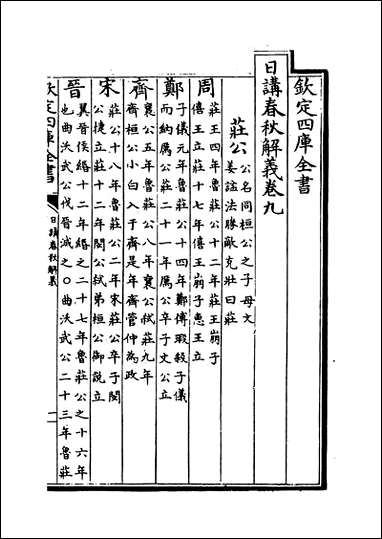 欽定四庫全書
日講春秋解義卷九
莊公
公名同桓公之子母文
姜諡法勝敵克壯曰莊
周
莊王四年魯莊公十二年莊王崩子
僖王立莊十七年僖王崩子惠王立
鄭
子儀元年魯莊公十四年鄭傅瑕殺子儀
而納厲公莊二十一年厲公卒子文公立
齊
襄公五年魯莊公八年襄公弑莊九年
齊桓公小白入于齊是年齊管仲為政
宋
莊公十八年魯莊公二年宋莊公卒子閔
公捷立莊十二年閔公弑弟桓公御説立
晉
翼晉侯緡十二年緡之二十七年魯莊公之十六年
也曲沃武公伐晉滅之○曲沃武公二十三年魯莊
欽定四庫全書
日講春秋解義
一